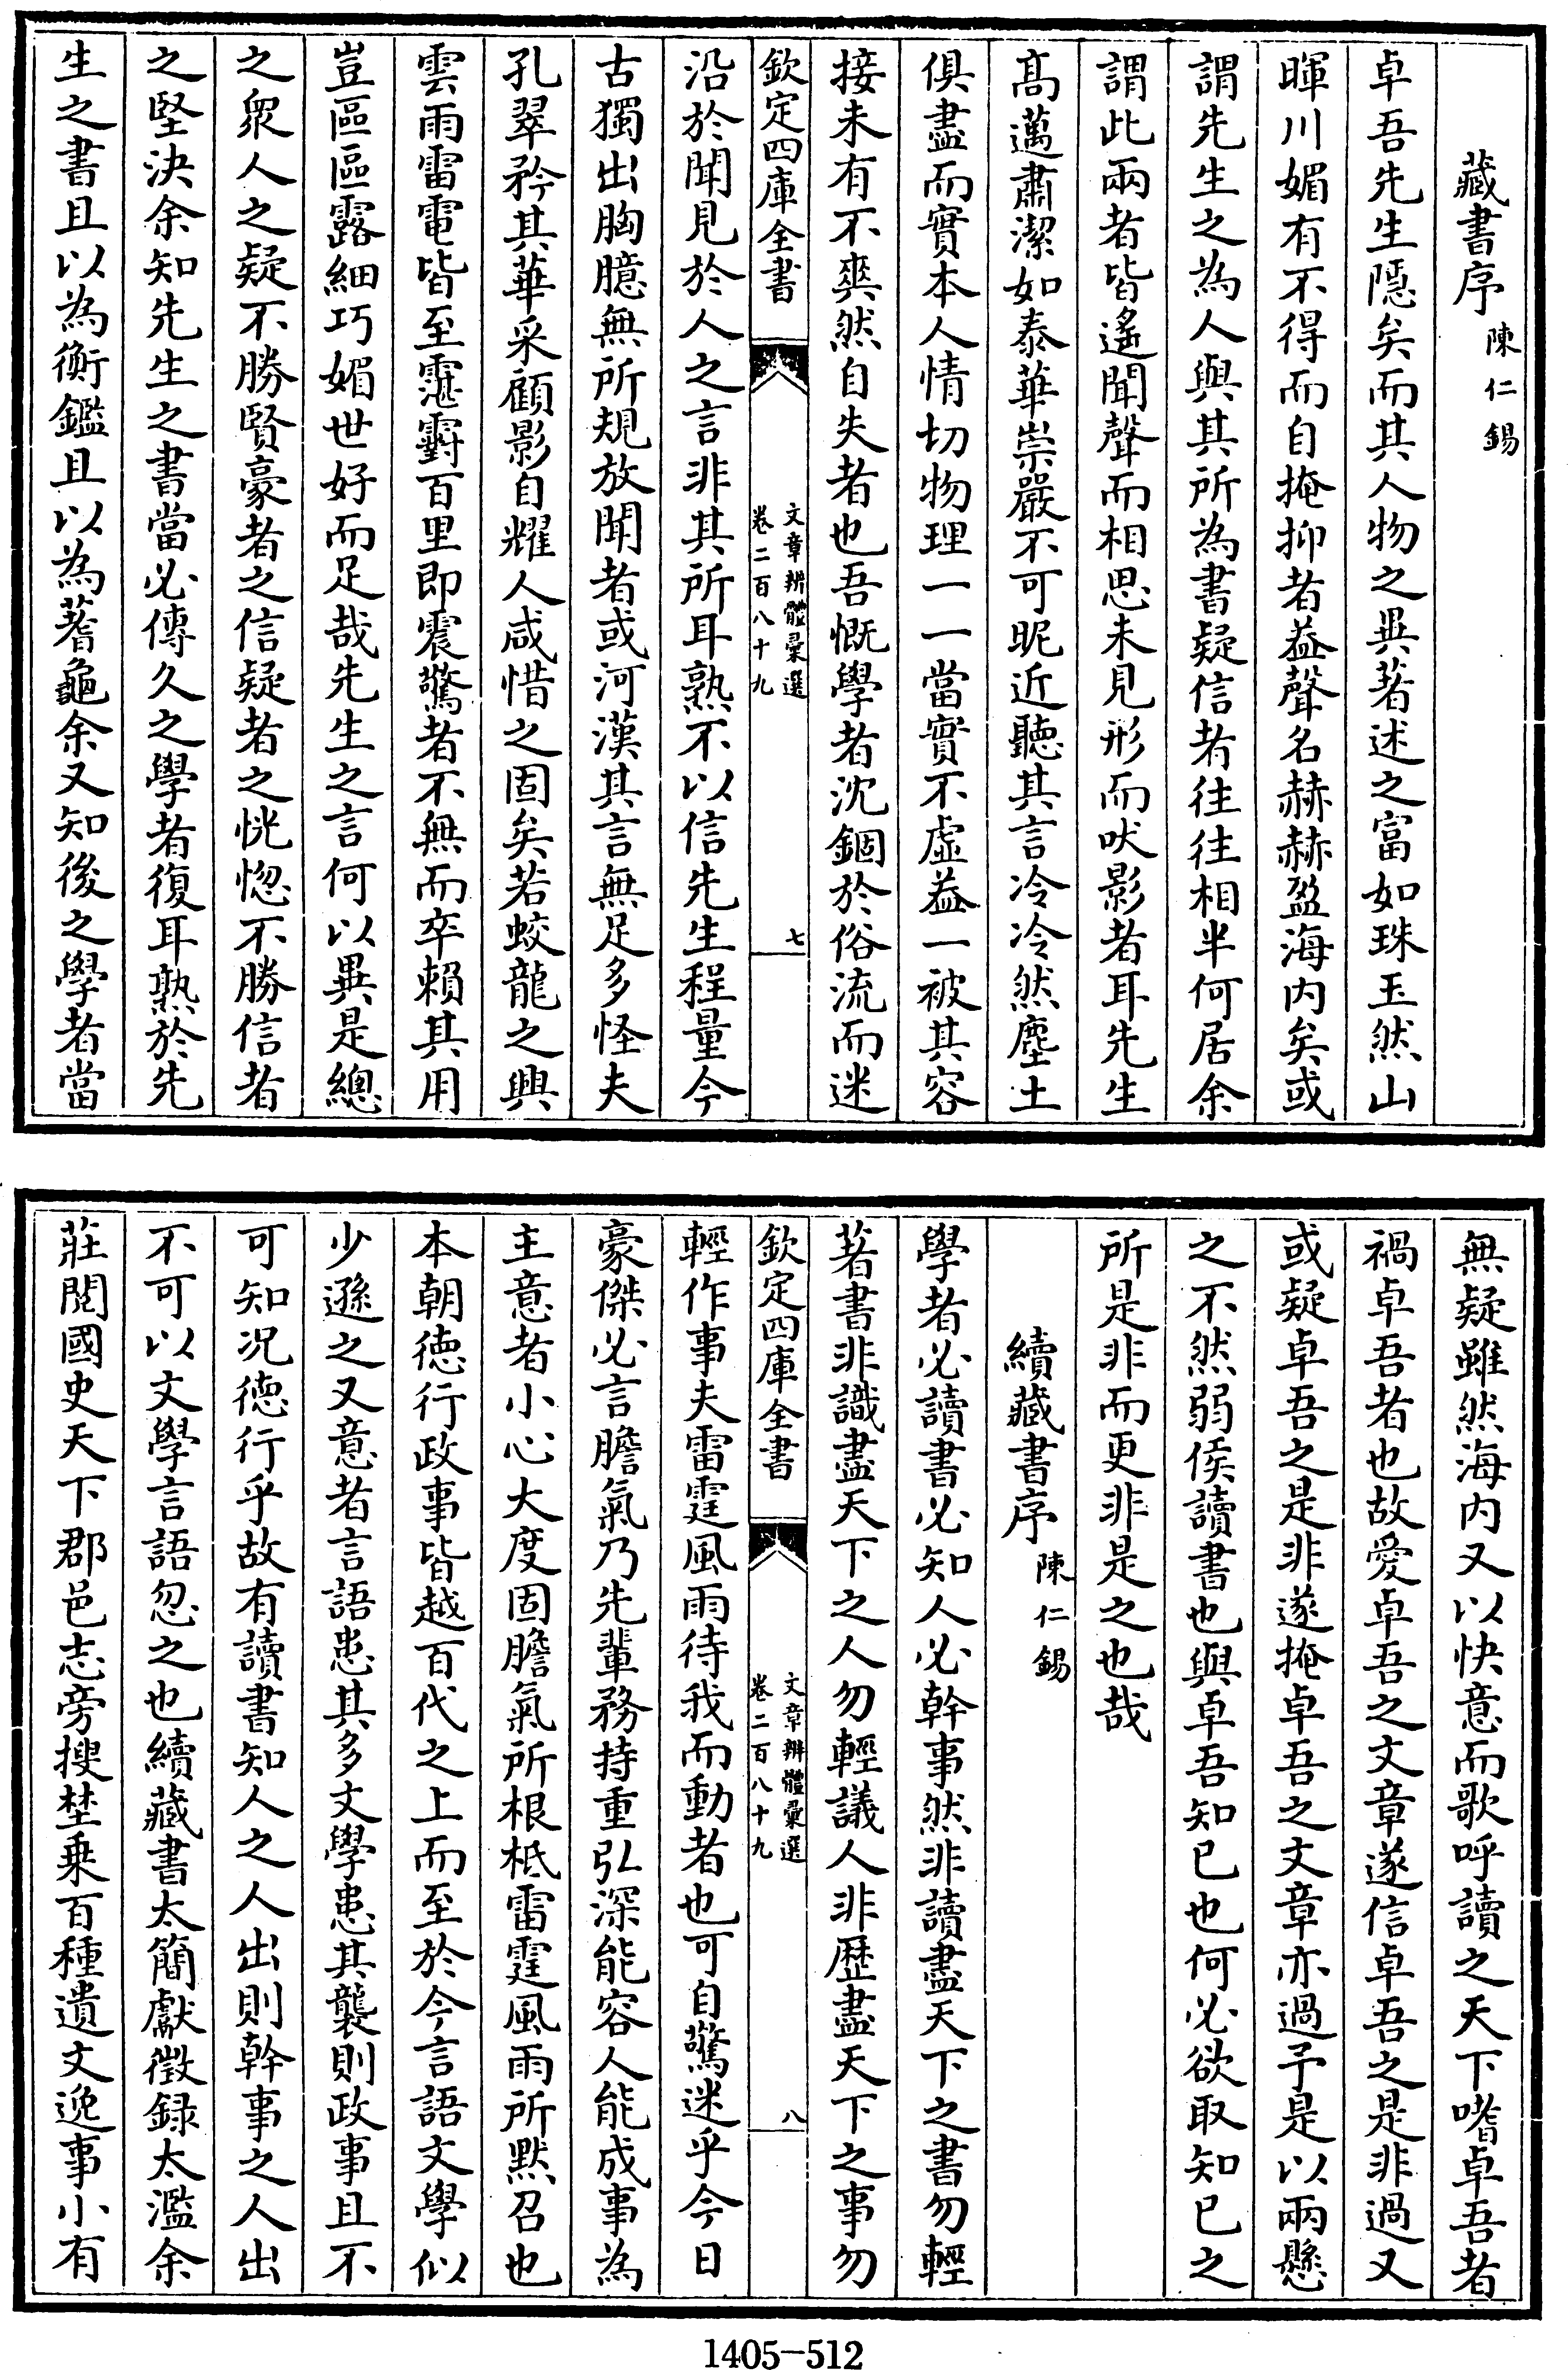 藏書序陳仁錫
卓吾先生隱矣而其人物之異著述之富如珠玉然山
暉川媚有不得而自掩抑者葢聲名赫赫盈海内矣或
謂先生之為人與其所為書疑信者往往相半何居余
謂此兩者皆遙聞聲而相思未見形而吠影者耳先生
髙邁肅潔如泰華崇嚴不可昵近聽其言冷冷然塵土
俱盡而實本人情切物理一一當實不虛葢一被其容
接未有不爽然自失者也吾慨學者沈錮於俗流而迷
欽定四庫全書
文章辨體彚選
卷二百八十九
七
沿於聞見於人之言非其所耳熟不以信先生程量今
古獨出胸臆無所規放聞者或河漢其言無足多怪夫
孔翠矜其華采顧影自耀人咸惜之固矣若蛟龍之興
雲雨雷電皆至霓霨百里即震驚者不無而卒賴其用
豈區區露細巧媚世好而足哉先生之言何以異是總
之衆人之疑不勝賢豪者之信疑者之恍惚不勝信者
之堅決余知先生之書當必傳久之學者復耳熟於先
生之書且以為衡鑑且以為蓍龜余又知後之學者當
無疑雖然海内又以快意而歌呼讀之天下嗜卓吾者
禍卓吾者也故愛卓吾之文章遂信卓吾之是非過又
或疑卓吾之是非遂掩卓吾之文章亦過予是以兩懸
之不然弱侯讀書也與卓吾知已也何必欲取知已之
所是非而更非是之也哉
續藏書序陳仁錫
學者必讀書必知人必幹事然非讀盡天下之書勿輕
著書非識盡天下之人勿輕議人非歴盡天下之事勿
欽定四庫全書
文章辨體彚選
卷二百八十九
八
輕作事夫雷霆風雨待我而動者也可自驚迷乎今日
豪傑必言膽氣乃先輩務持重弘深能容人能成事為
主意者小心大度固膽氣所根柢雷霆風雨所黙召也
本朝徳行政事皆越百代之上而至於今言語文學似
少遜之又意者言語患其多文學患其襲則政事且不
可知况徳行乎故有讀書知人之人出則幹事之人出
不可以文學言語忽之也續藏書太簡獻徵録太濫余
莊閱國史天下郡邑志旁搜埜乗百種遺文逸事小有
1405-512